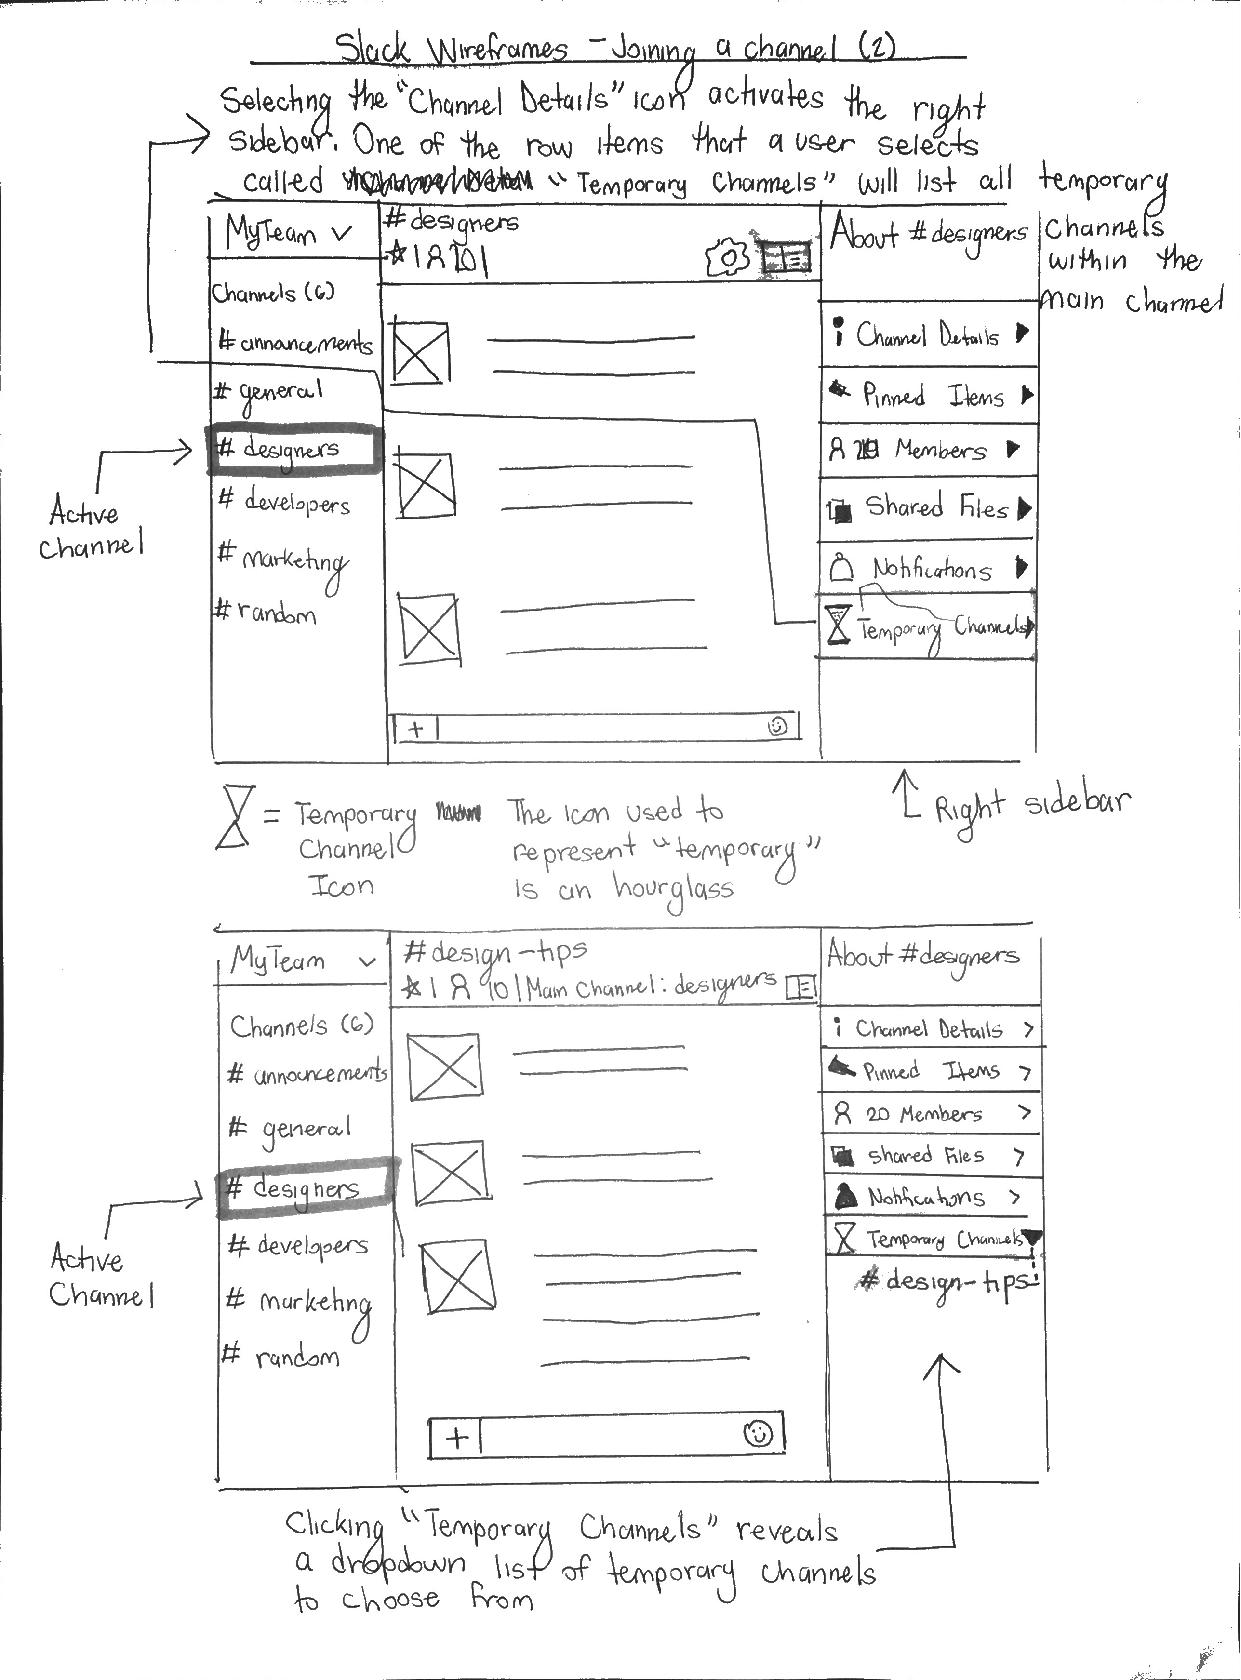 Slack Wireframes - Joining a channel (2)
Selecting the "Channel Details" icon activates the right
sidebar. One of the row items that a user selects
called "Temporary Channels" will list all temporary
channels
within the
main channel
MyTeam
Channels (6)
# annancements
# general
# designers
# developers
# marketing
# random
Active
Channel
# designers
About # designers
Channel Details
Pinned Items
Members
Shared Files
Notifications
Temporary Channels
+
Right sidebar
= Temporary
Channel
Icon
The icon used to
represent "temporary"
is an hourglass
MyTeam
Channels (6)
# announcements
# general
# designers
# developers
# marketing
# random
Active
Channel
# design-tips
1 10 | Main Channel: designers
About # designers
Channel Details >
Pinned Items >
20 Members >
Shared Files >
Notifications >
Temporary Channels
# design-tips
+
Clicking "Temporary Channels" reveals
a dropdown list of temporary channels
to choose from